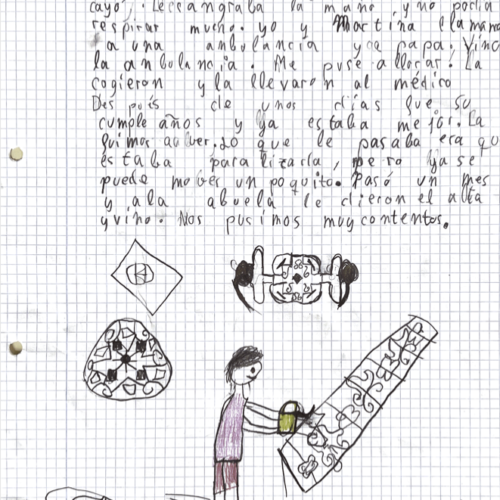 cayó, . Le sangraba la mano y no podía
respirar mucho. yo y Martina llamamo
a una ambulancia y a papa, Vino
la ambulancia. Me puse a llorar. La
cogieron y la llevaron al médico
Des puis de unos dias fue su
cumple años y ya estaba mejor. La
fuimos a ver. Lo que le pasaba era qu
estaba paralizarla, pero ya se
puede mober un poquito. Pasó un mes
y a la abuela le dieron el alta
y vino. Nos pusimos muy contentos.